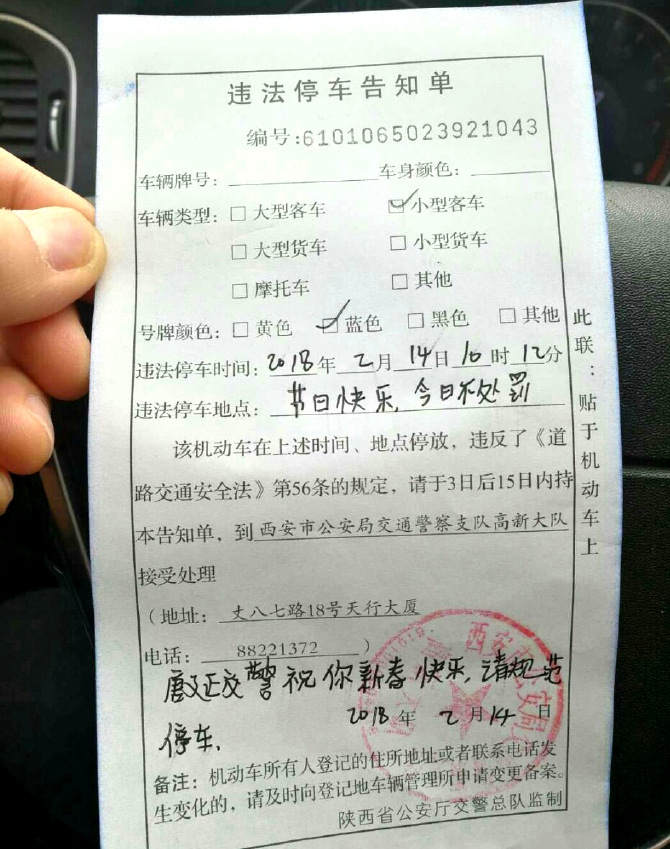 违法停车告知单
编号:6101065023921043
车辆牌号: 车身颜色:
车辆类型: □大型客车 ☑小型客车
□大型货车 □小型货车
□摩托车 □其他
号牌颜色: □黄色 ☑蓝色 □黑色 □其他
违法停车时间: 2018年2月14日16时12分
违法停车地点: 节日快乐,今日不处罚
该机动车在上述时间、地点停放,违反了《道
路交通安全法》第56条的规定,请于3日后15日内持
本告知单,到西安市公安局交通警察支队高新大队
接受处理
(地址: 丈八七路18号天行大厦
电话: 88221372 )
交警祝你新春快乐,请规范
2018年2月14日
停车,
备注:机动车所有人登记的住所地址或者联系电话发
生变化的,请及时向登记地车辆管理所申请变更备案。
陕西省公安厅交警总队监制
此联:贴于机动车上